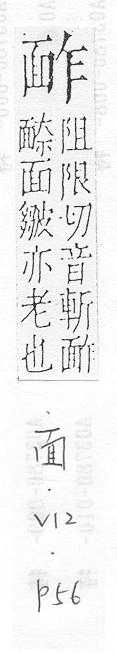 䩆
阻限切音斬䩆
面皺亦老也
·
面
·
V12
·
p56